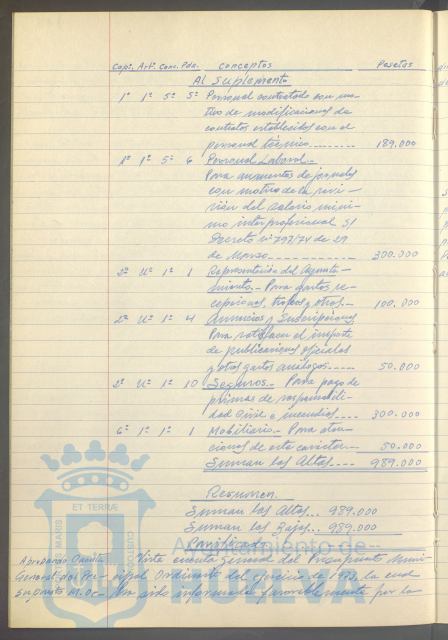 Capº. Artº. Conc. Pda. Conceptos Pesetas
Al Suplemento
1º 1º 5º 5º Personal contratado con mo-
tivo de modificaciones de
contratos establecidos con el
personal técnico 189.000
1º 1º 5º 6 Personal Laboral.-
Para aumentos de jornales
con motivo de la revi-
sión del salario míni-
mo interprofesional S/
Decreto nº 797/74 de 29
de Marzo 300.000
2º Uº 1º 1 Representación del Ayunta-
miento.- Para gastos re-
cepciones, trofeos y otros 100.000
2º Uº 1º 4 Anuncios y Suscripciones
Para satisfacer el importe
de publicaciones oficiales
y otros gastos análogos 50.000
2º Uº 1º 10 Seguros.- Para pago de
primas de responsabili-
dad Civil e incendios 300.000
6º 1º 1º 1 Mobiliario.- Para aten-
ciones de este carácter 50.000
Suman las Altas 989.000
Resumen.
Suman las Altas... 989.000
Suman las Bajas... 989.000
ET TERRAE
Ayuntamiento de
HUELVA
Aprobando Cuenta
General del Pre-
supuesto M. Or-
Vista cuenta general del Presupuesto Muni-
cipal Ordinario del ejercicio de 1973, la cual
ha sido informada favorablemente por la